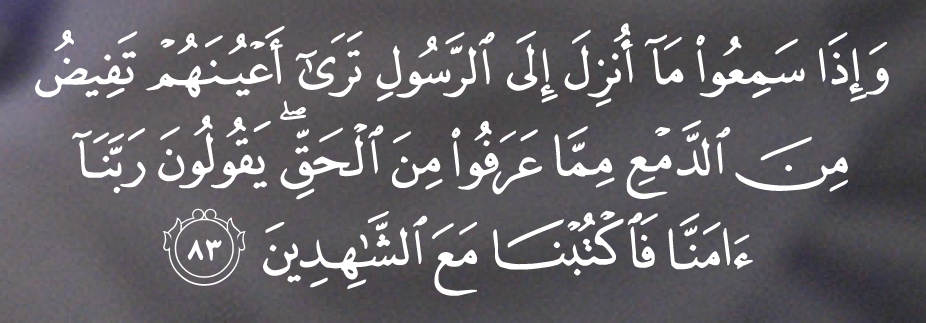 وَإِذَا سَمِعُوا۟ مَآ أُنزِلَ إِلَى ٱلرَّسُولِ تَرَىٰٓ أَعْيُنَهُمْ تَفِيضُ
مِنَ ٱلدَّمْعِ مِمَّا عَرَفُوا۟ مِنَ ٱلْحَقِّ ۖ يَقُولُونَ رَبَّنَآ
ءَامَنَّا فَٱكْتُبْنَا مَعَ ٱلشَّٰهِدِينَ ٨٣